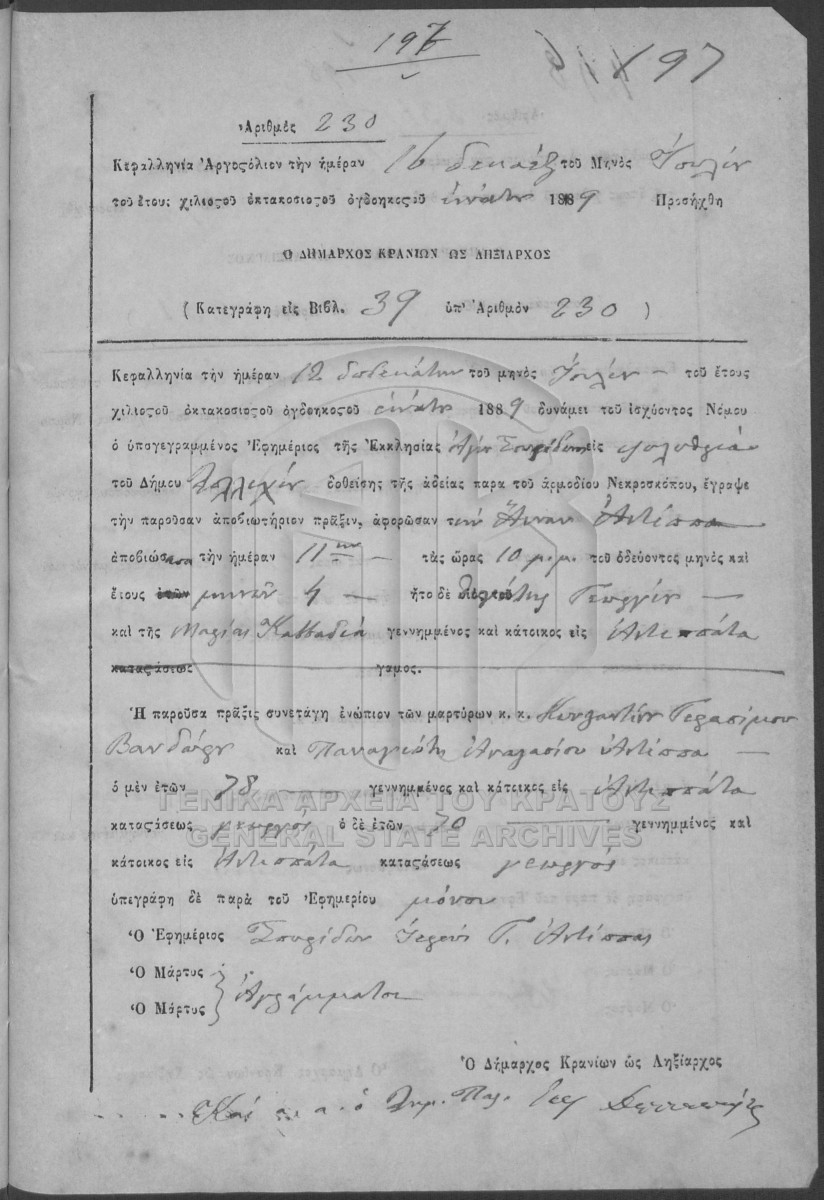 197
197
Ἀριθμός 230
Κεφαλληνία Ἀργοςόλιον τὴν ἡμέραν 16 δεκαέξ τοῦ Μηνός Ἰουλίου
τοῦ ἔτους χιλιοςοῦ ὀκτακοσιοςοῦ ὀγδοηκοςοῦ ἐννάτου 1889 Προσήχθη
Ὁ ΔΗΜΑΡΧΟΣ ΚΡΑΝΙΩΝ ΩΣ ΛΗΞΙΑΡΧΟΣ
(Κατεγράφη εἰς Βιβλ. 39 ὑπ' Ἀριθμὸν 230)
Κεφαλληνία τὴν ἡμέραν 12 δωδεκάτην τοῦ μηνὸς Ἰουλίου τοῦ ἔτους
χιλιοςοῦ ὀκτακοσιοςοῦ ὀγδοηκοςοῦ ἐννάτου 1889 δυνάμει τοῦ ἰσχύοντος Νόμου
ὁ ὑπογεγραμμένος Ἐφημέριος τῆς Ἐκκλησίας Ἁγίου Σπυρίδωνος εἰς
τοῦ Δήμου ὁρθείσης τῆς ἀδείας παρα τοῦ ἁρμοδίου Νεκροσκόπου, ἔγραψε
τὴν παροῦσαν ἀποβιωτήριον πρᾶξιν, ἀφορῶσαν τὴν Ἄνναν Ἀντίππα
ἀποβιώσασαν τὴν ἡμέραν 11ην τὰς ὥρας 10 μ.μ. τοῦ ὁδεύοντος μηνὸς καὶ
ἔτους ἐτῶν μηνῶν 4 ἦτο δὲ θυγάτηρ Γεωργίου
καὶ τῆς Μαρίας Καββαδία γεννημμένος καὶ κάτοικος εἰς Ἀντιππάτα
καταςάσεως γαμος.
Ἡ παροῦσα πρᾶξις συνετάγη ἐνώπιον τῶν μαρτύρων κ. κ. Κωνςαντίνου Γερασίμου
Βανδώρου καὶ Παναγιώτη Ἀναςασίου Ἀντίππα
ὁ μὲν ἐτῶν 78 γεννημμένος καὶ κάτοικος εἰς Ἀντιππάτα
καταςάσεως γεωργός ὁ δὲ ἐτῶν 70 γεννημμένος καὶ
κάτοικος εἰς Ἀντιππάτα καταςάσεως γεωργός
ὑπεγράφη δὲ παρὰ τοῦ Ἐφημερίου μόνου
Ὁ Ἐφημέριος Σπυρίδων Ἱερεύς Γ. Ἀντίππας
Ὁ Μάρτυς
Ὁ Μάρτυς Ἀγράμματοι
Ὁ Δήμαρχος Κρανίων ὡς Ληξίαρχος
ΓΕΝΙΚΑ ΑΡΧΕΙΑ ΤΟΥ ΚΡΑΤΟΥΣ
GENERAL STATE ARCHIVES